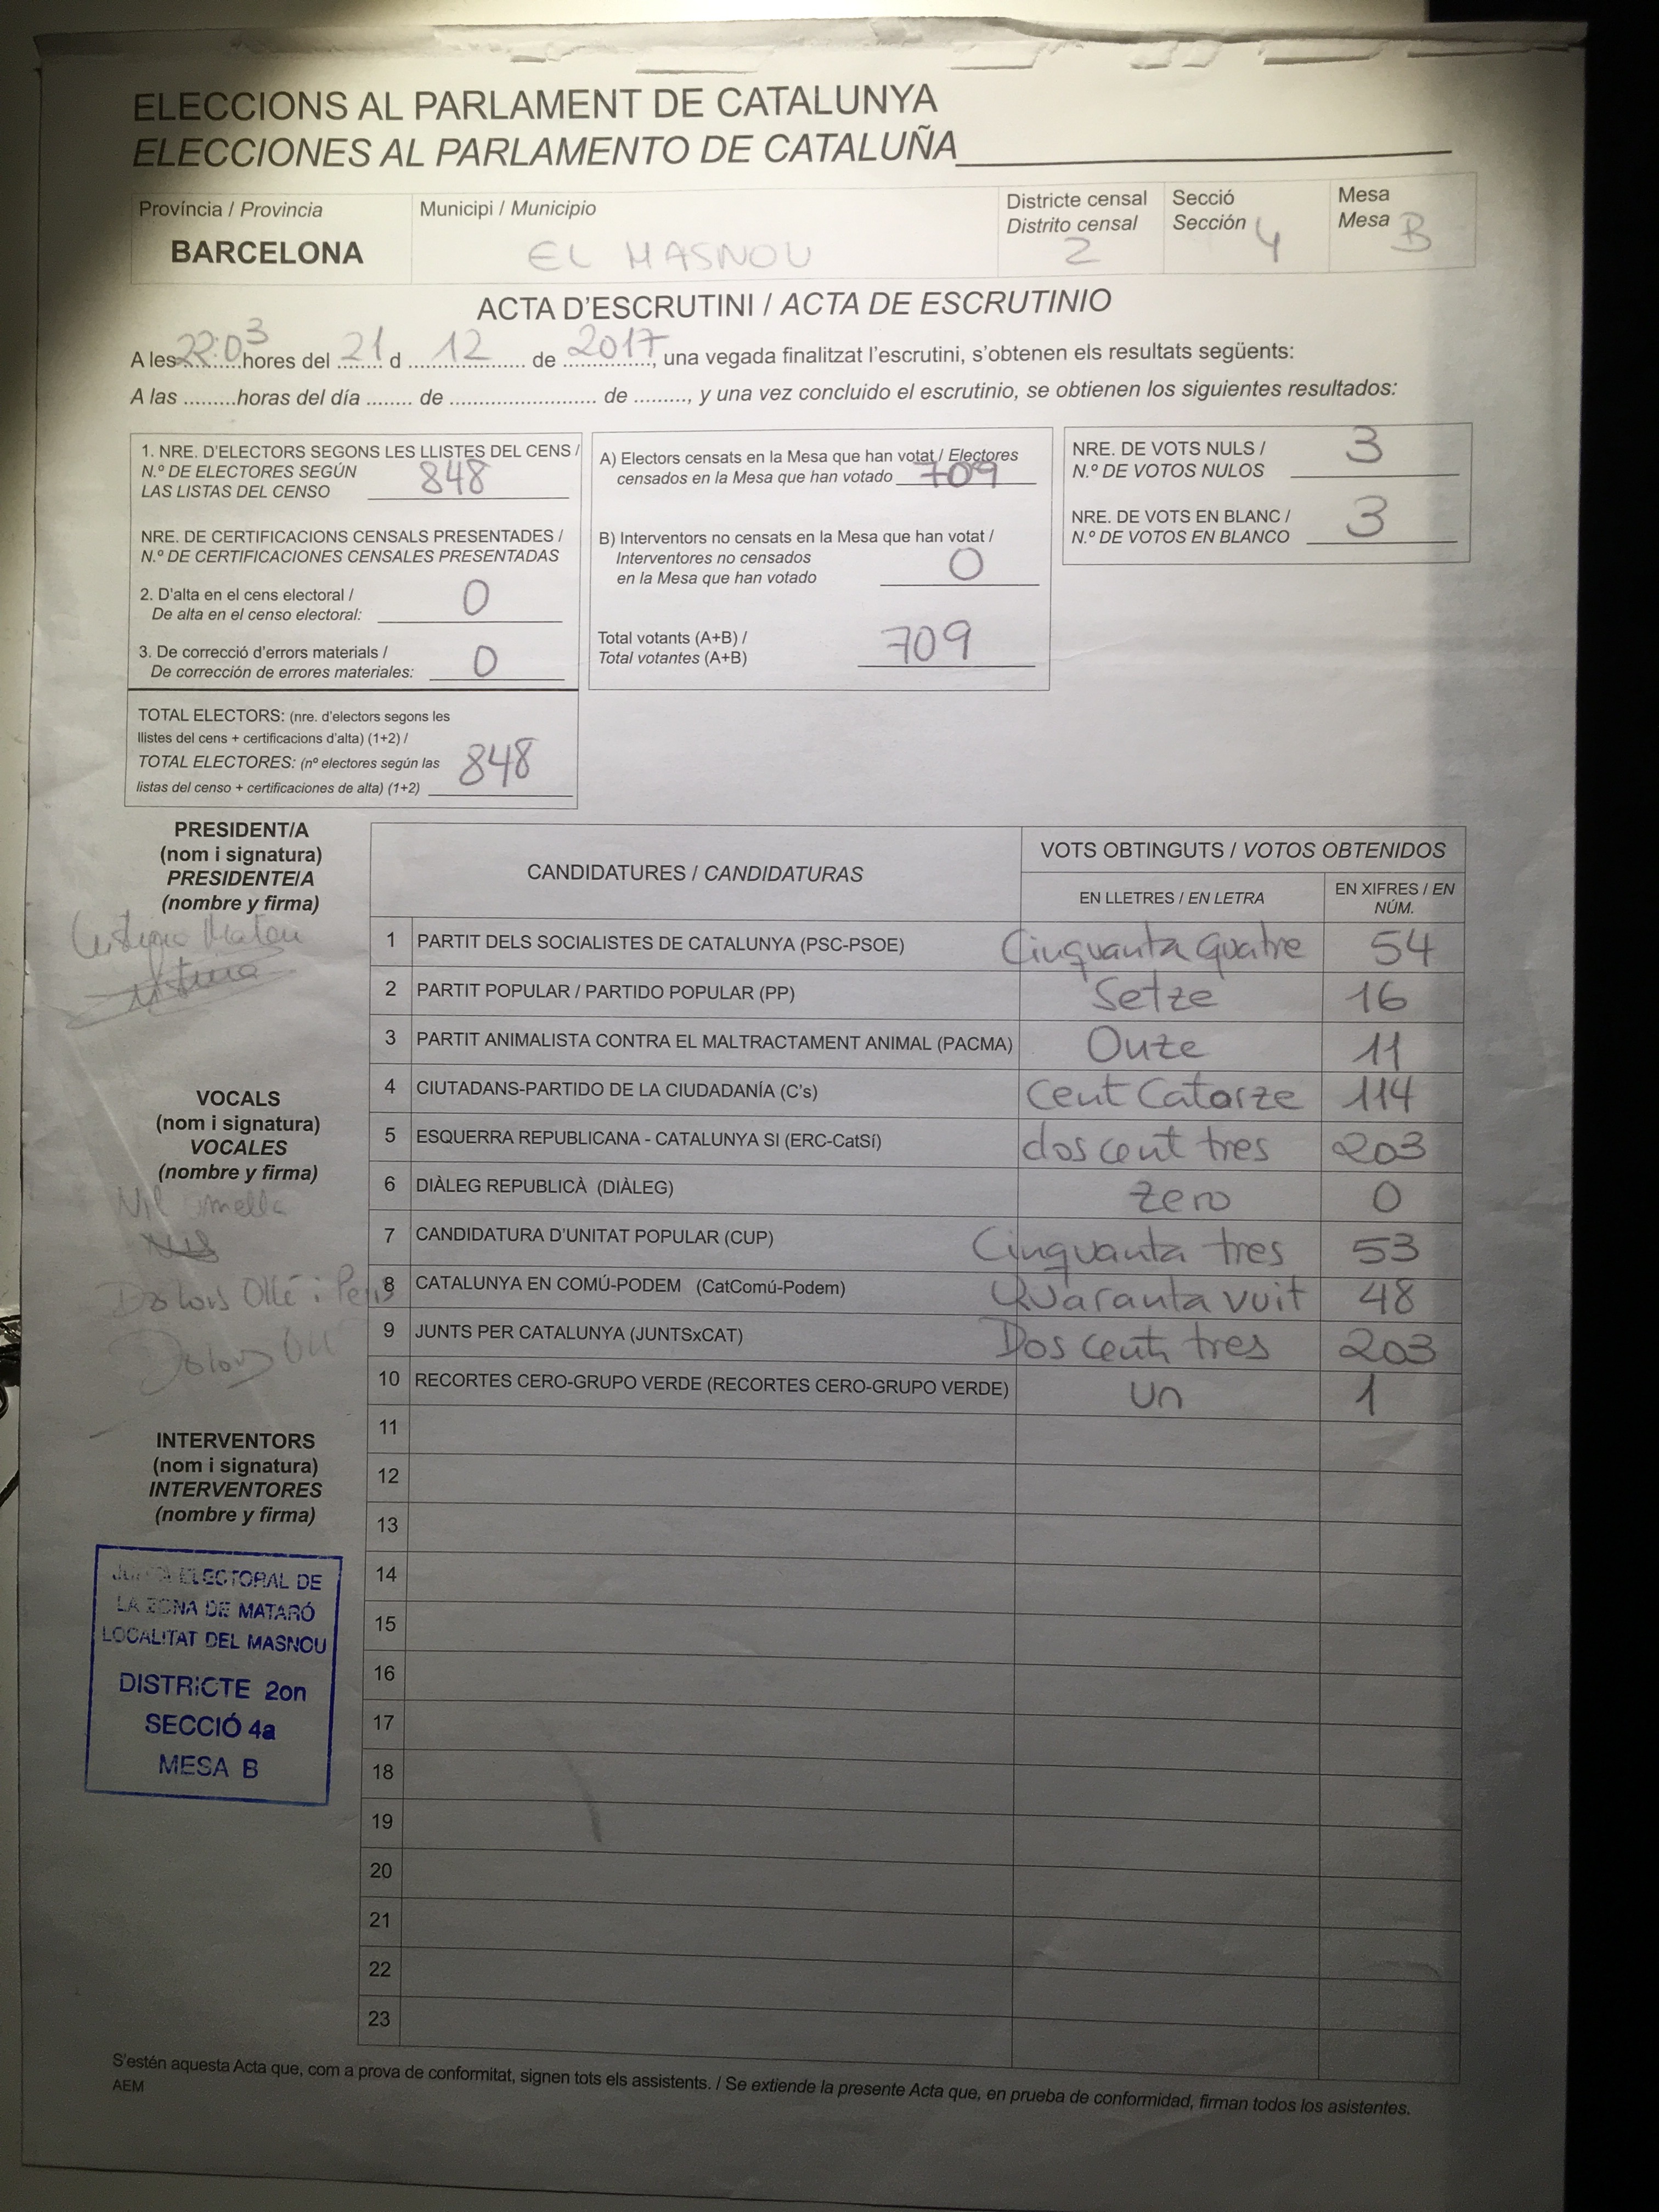 ELECCIONS AL PARLAMENT DE CATALUNYA
ELECCIONES AL PARLAMENTO DE CATALUÑA
Província / Provincia
BARCELONA
Municipi / Municipio
EL MASNOU
Districte censal
Distrito censal
2
Secció
Sección 4
Mesa
Mesa B
ACTA D'ESCRUTINI / ACTA DE ESCRUTINIO
A les 22:03 hores del 21 d 12 de 2017, una vegada finalitzat l'escrutini, s'obtenen els resultats següents:
A las .........horas del día ........ de ......................... de ........., y una vez concluido el escrutinio, se obtienen los siguientes resultados:
1. NRE. D'ELECTORS SEGONS LES LLISTES DEL CENS /
N.º DE ELECTORES SEGÚN
LAS LISTAS DEL CENSO 848
NRE. DE CERTIFICACIONS CENSALS PRESENTADES /
N.º DE CERTIFICACIONES CENSALES PRESENTADAS
2. D'alta en el cens electoral /
De alta en el censo electoral: 0
3. De correcció d'errors materials /
De corrección de errores materiales: 0
TOTAL ELECTORS: (nre. d'electors segons les
llistes del cens + certificacions d'alta) (1+2) /
TOTAL ELECTORES: (nº electores según las
listas del censo + certificaciones de alta) (1+2) 848
A) Electors censats en la Mesa que han votat / Electores
censados en la Mesa que han votado 709
B) Interventors no censats en la Mesa que han votat /
Interventores no censados
en la Mesa que han votado 0
Total votants (A+B) /
Total votantes (A+B) 709
NRE. DE VOTS NULS /
N.º DE VOTOS NULOS 3
NRE. DE VOTS EN BLANC /
N.º DE VOTOS EN BLANCO 3
PRESIDENT/A
(nom i signatura)
PRESIDENTE/A
(nombre y firma)
VOCALS
(nom i signatura)
VOCALES
(nombre y firma)
Nil
Dolors Ollé i
Dolors
INTERVENTORS
(nom i signatura)
INTERVENTORES
(nombre y firma)
JUNTA ELECTORAL DE
LA ZONA DE MATARÓ
LOCALITAT DEL MASNOU
DISTRICTE 2on
SECCIÓ 4a
MESA B
CANDIDATURES / CANDIDATURAS
VOTS OBTINGUTS / VOTOS OBTENIDOS
EN LLETRES / EN LETRA
EN XIFRES / EN
NÚM.
1 PARTIT DELS SOCIALISTES DE CATALUNYA (PSC-PSOE) Cinquanta quatre 54
2 PARTIT POPULAR / PARTIDO POPULAR (PP) Setze 16
3 PARTIT ANIMALISTA CONTRA EL MALTRACTAMENT ANIMAL (PACMA) Onze 11
4 CIUTADANS-PARTIDO DE LA CIUDADANÍA (C's) Cent Catorze 114
5 ESQUERRA REPUBLICANA - CATALUNYA SI (ERC-CatSí) dos cent tres 203
6 DIÀLEG REPUBLICÀ (DIÀLEG) Zero 0
7 CANDIDATURA D'UNITAT POPULAR (CUP) Cinquanta tres 53
8 CATALUNYA EN COMÚ-PODEM (CatComú-Podem) Quaranta vuit 48
9 JUNTS PER CATALUNYA (JUNTSxCAT) Dos cent tres 203
10 RECORTES CERO-GRUPO VERDE (RECORTES CERO-GRUPO VERDE) un 1
11
12
13
14
15
16
17
18
19
20
21
22
23
S'estén aquesta Acta que, com a prova de conformitat, signen tots els assistents. / Se extiende la presente Acta que, en prueba de conformidad, firman todos los asistentes.
AEM